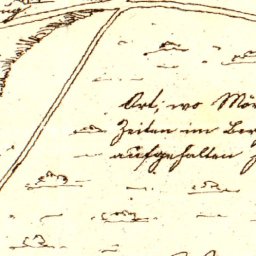 Ort, wo Mör
Zeiten im Ber
aufgehalten